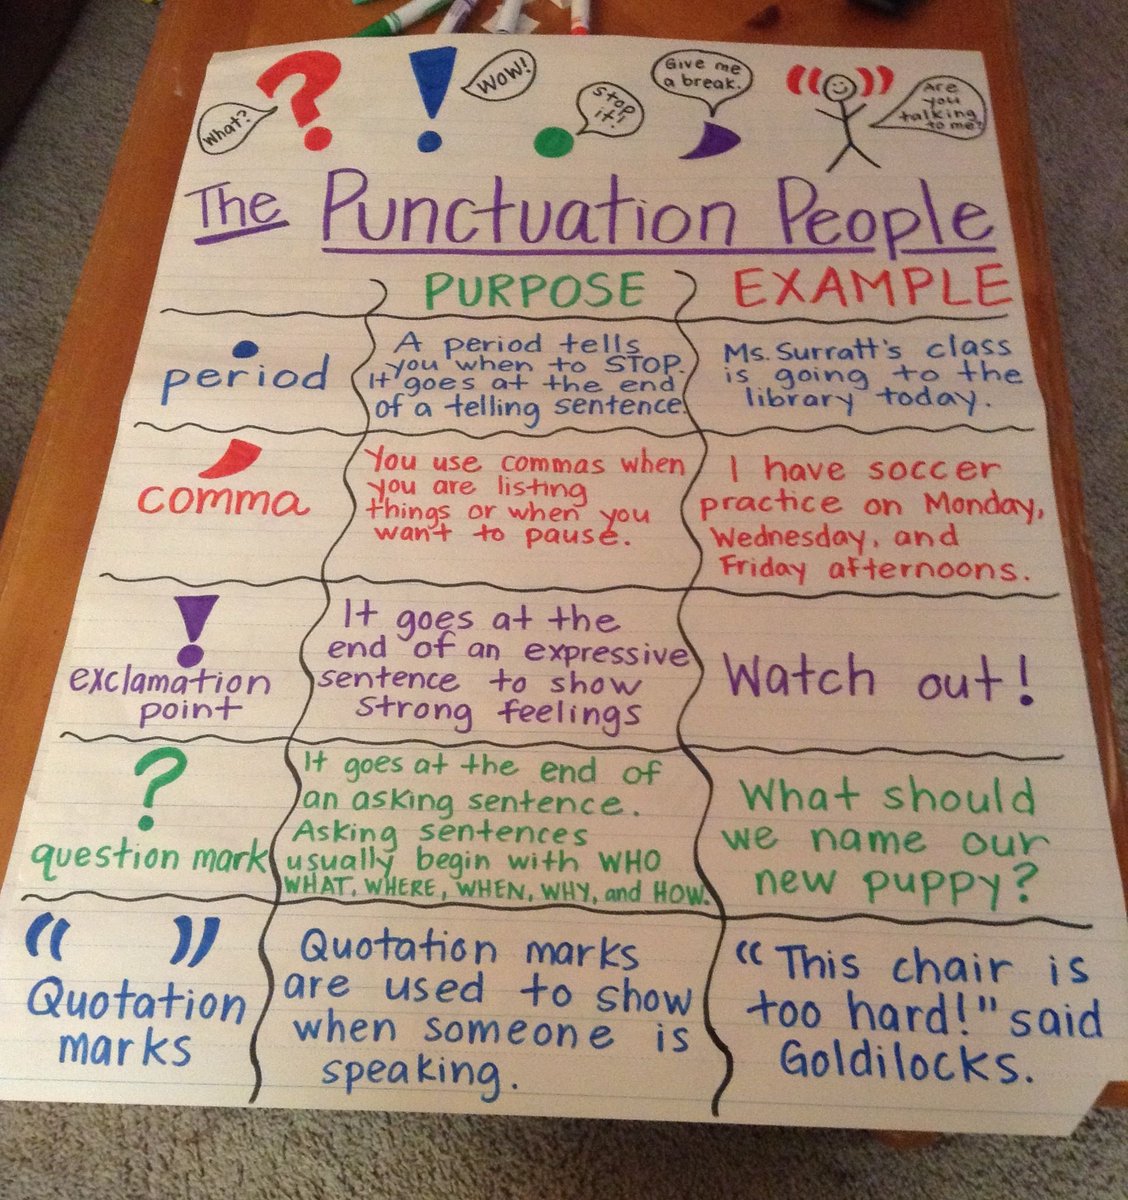 What?
WOW!
Stop
it!
Give me
a break.
Are
you
talking
to me?
The Punctuation People
PURPOSE
EXAMPLE
period
A period tells
you when to STOP.
It goes at the end
of a telling sentence.
Ms. Surratt's class
is going to the
library today.
comma
You use commas when
you are listing
things or when you
want to pause.
I have soccer
practice on Monday,
Wednesday, and
Friday afternoons.
!
exclamation
point
It goes at the
end of an expressive
sentence to show
strong feelings
Watch out!
?
question mark
It goes at the end of
an asking sentence.
Asking sentences
usually begin with WHO
WHAT, WHERE, WHEN, WHY, and HOW.
What should
we name our
new puppy?
“ ”
Quotation
marks
Quotation marks
are used to show
when someone is
speaking.
“This chair is
too hard!" said
Goldilocks.